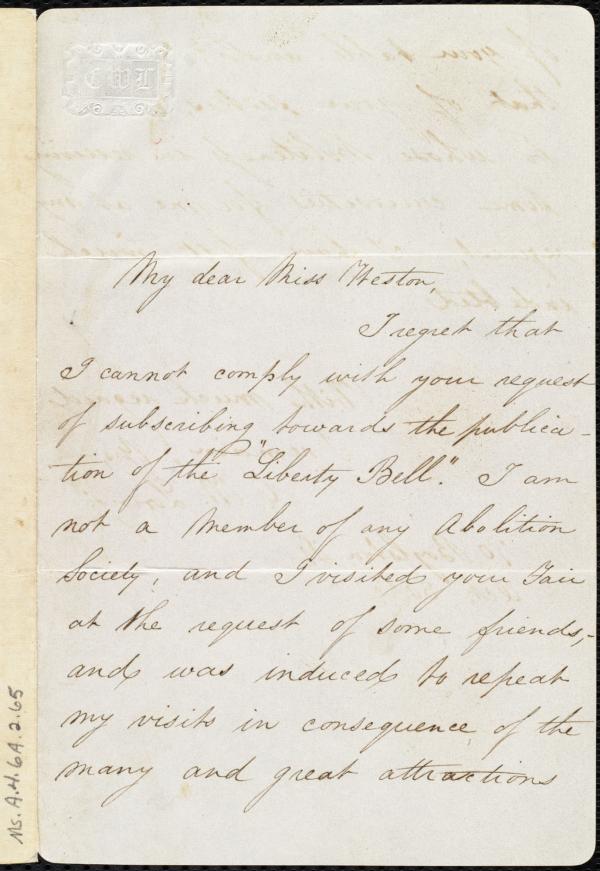 CWL
My dear Miss Weston,
I regret that
I cannot comply with your request
of subscribing towards the publica-
tion of the "Liberty Bell". I am
not a member of any Abolition
Society, and I visited your Fair
at the request of some friends,-
and was induced to repeat
my visits in consequence of the
many and great attractions
Ms. A.4.6A.2.65